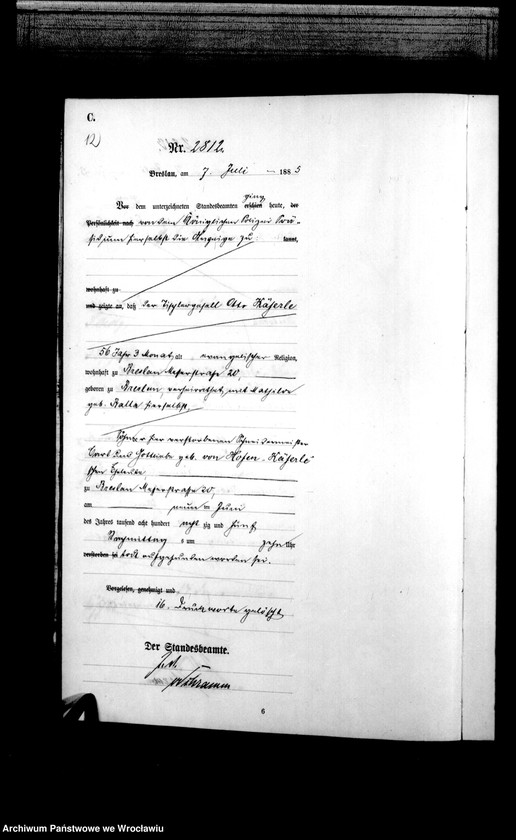 C.
12)
Nr. 2812.
Breslau, am 7 Juli 1885
ging
Vor dem unterzeichneten Standesbeamten erschien heute, der
Persönlichkeit nach von dem Königlichen Polizei Prä-
sidium hierselbst die Anzeige zu kannt,
wohnhaft zu
und zeigte an, daß der Tischlergesell Otto Käherle
56 Jahr 3 Monat alt evangelischer Religion,
wohnhaft zu Breslau 20,
geboren zu Breslau, verheirathet mit
geb. hierselbst,
Sohn der verstorbenen
Carl und geb. von Hofen-Käherle
schen Eheleute
zu Breslau 20,
am neun Juni
des Jahres tausend acht hundert acht zig und fünf
Vormittag s um zehn Uhr
verstorben sei todt aufgefunden worden sei.
Vorgelesen, genehmigt und
16. Druckworte gelöscht
Der Standesbeamte.
6
Archiwum Państwowe we Wrocławiu